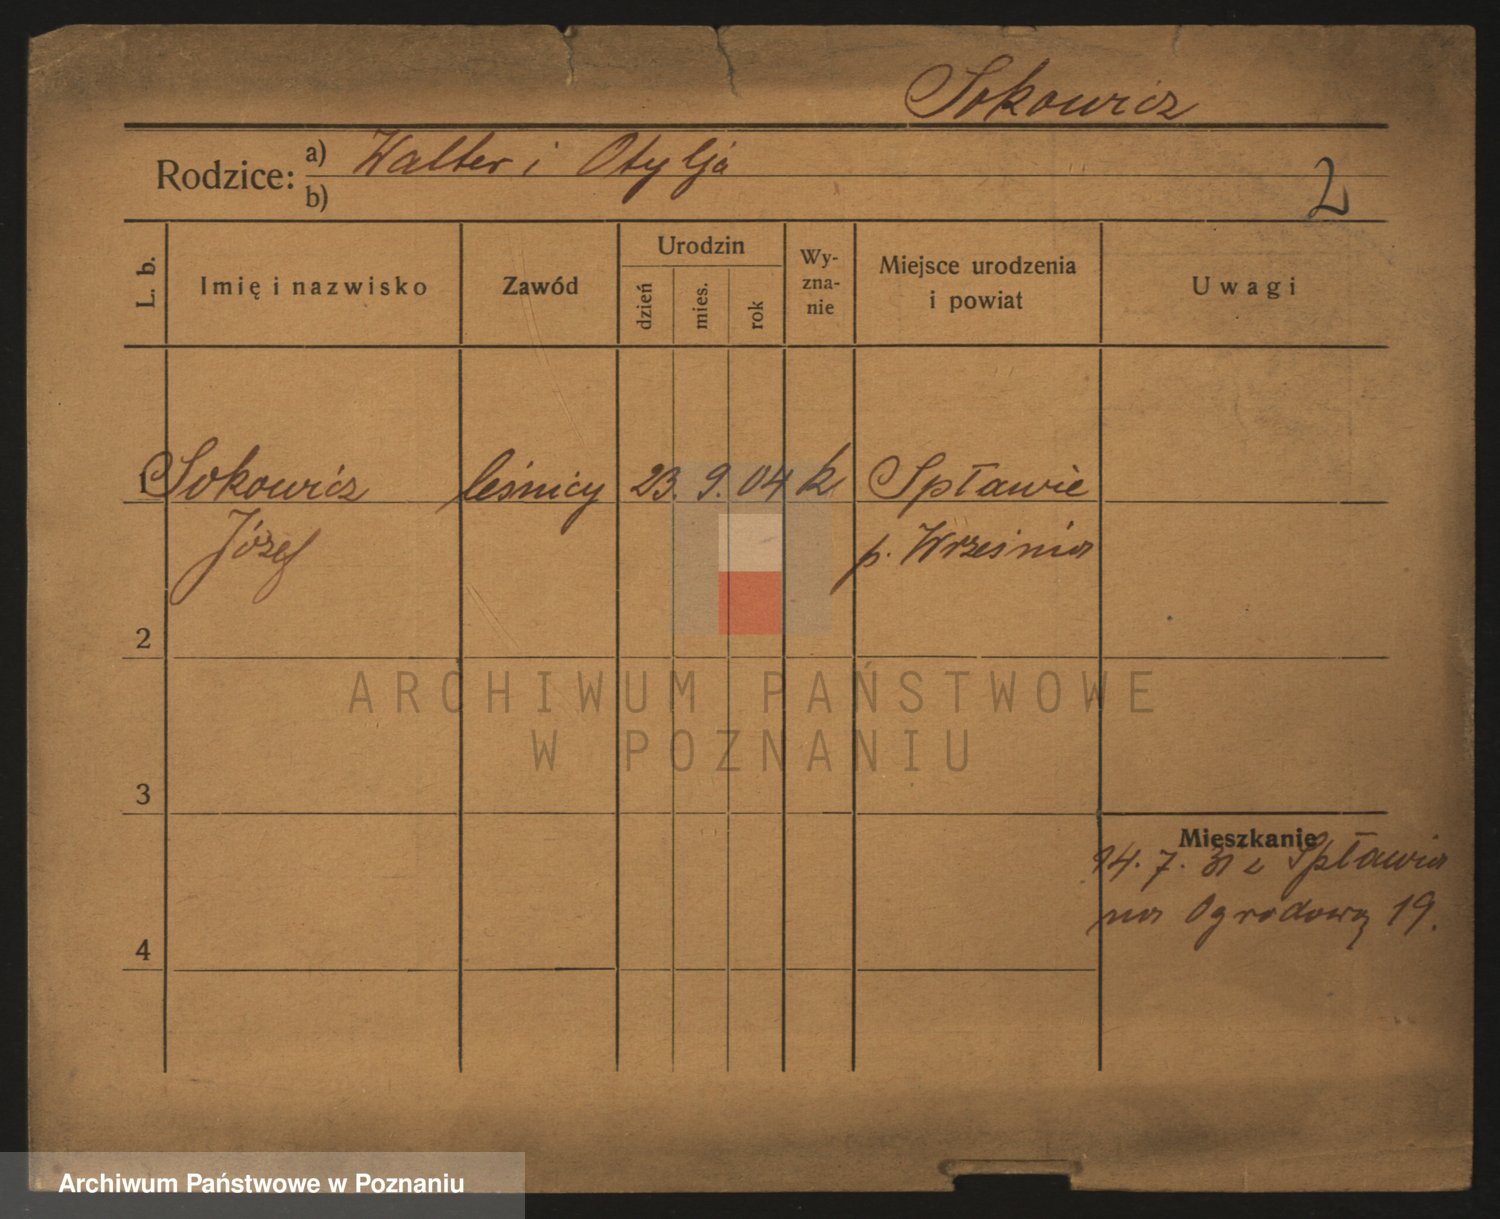 Sokowicz
Rodzice: a) Walter i Otylja
b)
2
L. b.
Imię i nazwisko
Zawód
Urodzin
dzień
mies.
rok
Wy-
zna-
nie
Miejsce urodzenia
i powiat
Uwagi
1 Sokowicz leśnicy 23. 9. 04 k Spławie
Józef p. Września
2
ARCHIWUM PAŃSTWOWE
W POZNANIU
3
Mieszkanie
14. 7. 31 z Spławia
na Ogrodową 19.
4
Archiwum Państwowe w Poznaniu